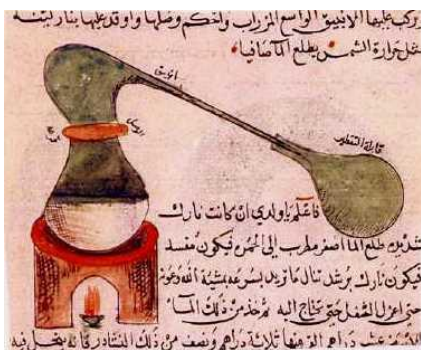 يركب عليها الانبيق الواسع المزراب واحكم وصلها واوقد عليها بنار لينة
مثل حرارة الشمس يطلع الما صافيا
انبيق
قابلة التقطير
فاعلم يا ولدي ان كانت نارك
شديدة طلع الما اصفر مطرب الى الحمرة فيكون مفسد
فيكون نارك برشد تنال ما تريد بسرعة بمشية الله وعونه
حتى اعزل الشغل حتى تحتاج اليه ثم خذ من ذلك الما
دراهم الق فيها ثلاثة دراهم ونصف من ذلك النشادر فانه ينحل فيه